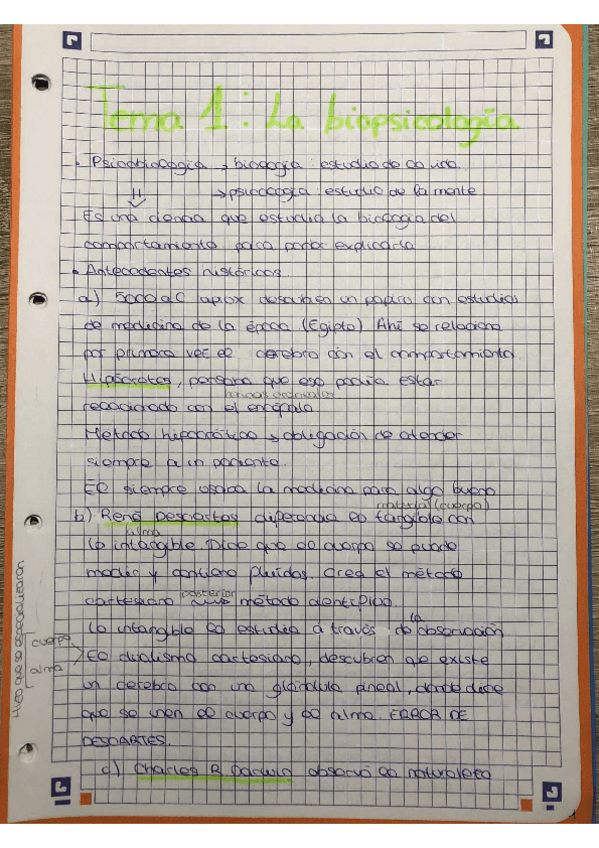 Tema 1: La biopsicología
• Psicobiología → biología: estudio de la vida
→ psicología: estudio de la mente
Es una ciencia que estudia la biología del
comportamiento para poder explicarla
• Antecedentes históricos
a) 5000 a.C aprox descubren un papiro con estudios
de medicina de la época (Egipto) Ahí se relaciona
por primera vez el cerebro con el comportamiento.
Hipócrates, persona que eso podía estar
relacionado con el encéfalo
Método hipocrático → obligación de atender
siempre a un paciente.
Él siempre usaba la medicina para algo bueno
material (cuerpo)
b) René Descartes diferencia lo tangible con
alma
lo intangible. Dice que el cuerpo se puede
medir y contiene fluidos. Crea el método
posterior
cartesiano método científico.
la
Lo intangible lo estudia a través de observación
El dualismo cartesiano, descubren que existe
un cerebro con una glándula pineal, donde dice
que se unen el cuerpo y el alma. ERROR DE
DESCARTES.
c) Charles R Darwin observó la naturaleza
Hizo que se especializaran
cuerpo
alma